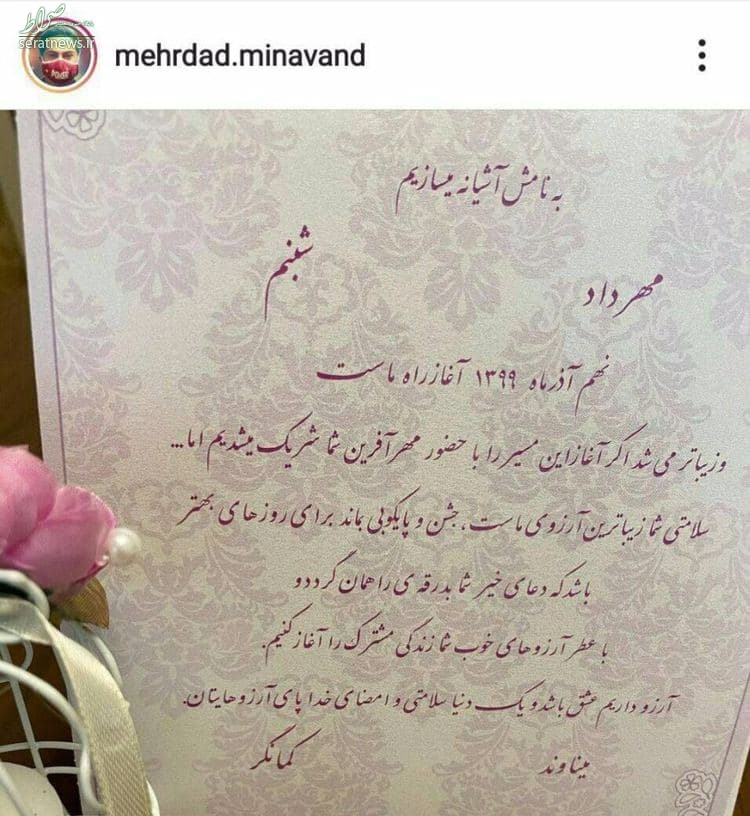 صراط
seratnews.ir
mehrdad.minavand
به نامش آشیانه میسازیم
مهرداد شبنم
نهم آذرماه ۱۳۹۹ آغاز راه ماست
و زیباتر می شد اگر آغاز این مسیر را با حضور مهرآفرین شما شریک میشدیم اما...
سلامتی شما زیباترین آرزوی ماست، جشن و پایکوبی بماند برای روزهای بهتر
باشد که دعای خیر شما بدرقه ی راهمان گردد و
با عطر آرزوهای خوب شما زندگی مشترک را آغاز کنیم.
آرزو داریم عشق باشد و یک دنیا سلامتی و امضای خدا پای آرزوهایتان.
میناوند کمانگر